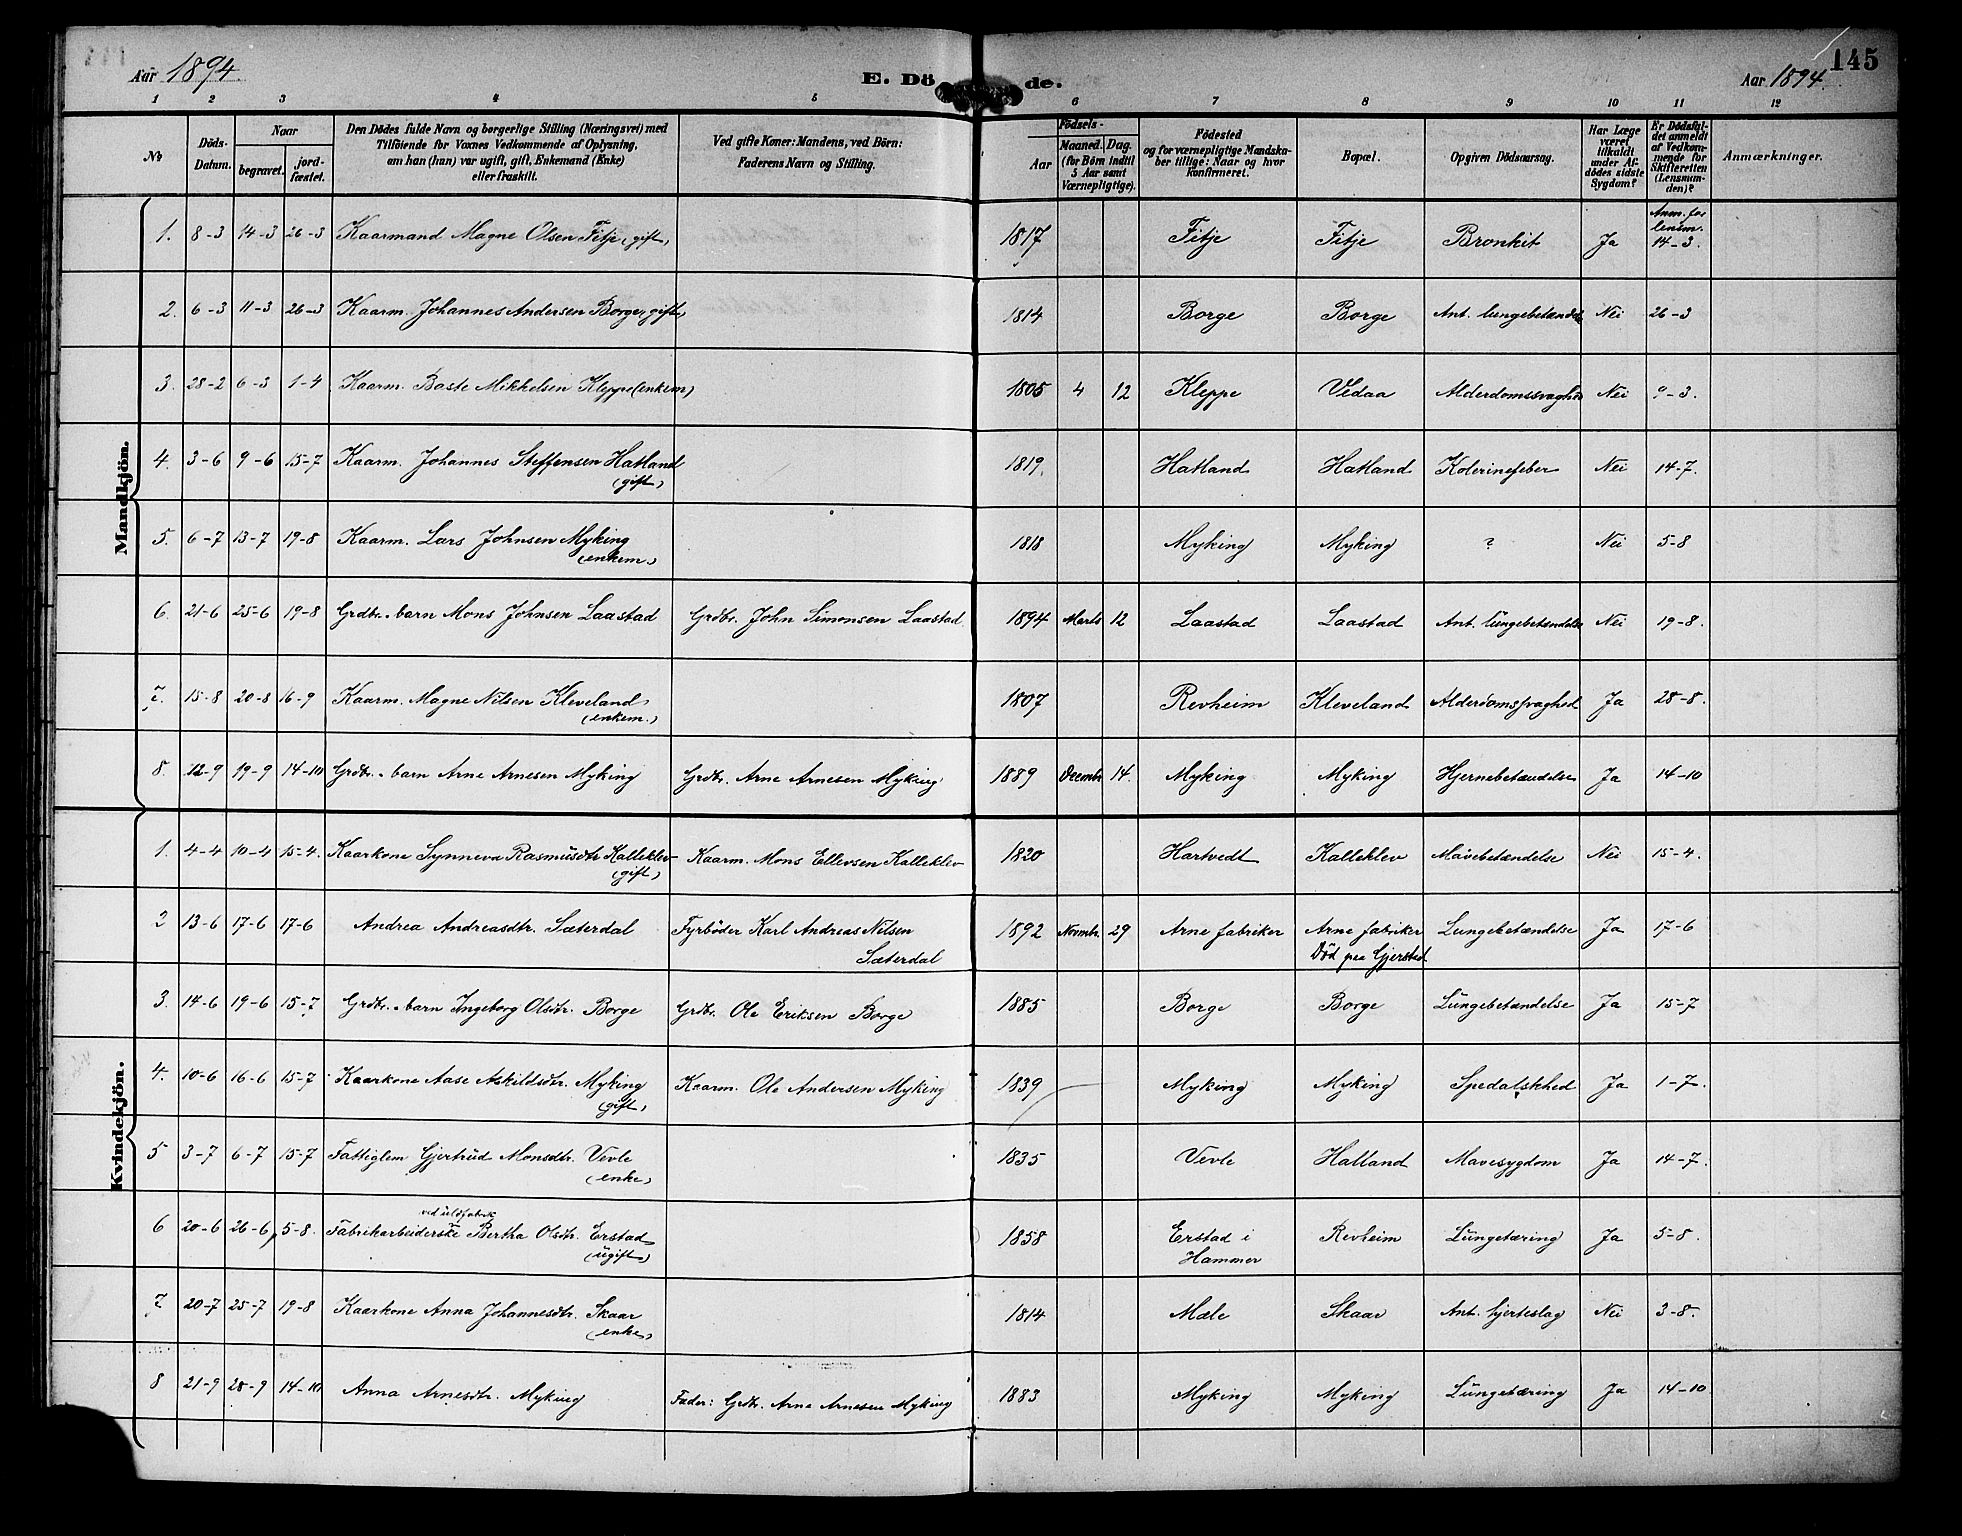 Aar 1894.
E. Dö de.
Aar 1894.
145
1 2 3 4 5 6 7 8 9 10 11 12
No
Döds-Datum.
Naar
begravet.
jord-fæstet.
Den Dödes fulde Navn og borgerlige Stilling (Næringsvei) med
Tilföiende for Voxnes Vedkommende af Oplysning,
om han (hun) var ugift, gift, Enkemand (Enke)
eller fraskilt.
Ved gifte Koner: Mandens, ved Börn:
Faderens Navn og Stilling.
Födsels-
Aar
Maaned. Dag.
(for Börn indtil
5 Aar samt
Værnepligtige).
Födested
og for værnepligtige Mandska-
ber tillige: Naar og hvor
konfirmeret.
Bopæl.
Opgiven Dödsaarsag.
Har Læge
været
tilkaldt
under Af-
dödes sidste
Sygdom?
Er Dödsfal-
det anmeldt
af Vedkom-
mende for
Skifteretten
(Lensman-
den)?
Anmærkninger.
Mandkjön.
1. 8-3 14-3 26-3 Kaarmand Magne Olsen Fitje (gift) 1817 Fitje Fitje Bronkit Ja Anm. for lensm. 14-3.
2. 6-3 11-3 26-3 Kaarm. Johannes Andersen Borge (gift) 1814 Borge Borge Ant. lungebetændelse Nei 26-3
3. 28-2 6-3 1-4 Kaarm. Baste Mikkelsen Kleppe (enkem) 1805 4 12 Kleppe Vedaa Alderdomssvaghed Nei 9-3.
4. 3-6 9-6 15-7 Kaarm. Johannes Steffensen Hatland (gift) 1819. Hatland Hatland Kolerinefeber Nei 14-7.
5. 6-7 13-7 19-8 Kaarm. Lars Johnsen Myking (enkem) 1818 Myking Myking ? Nei 5-8
6. 21-6 25-6 19-8 Grdbr.-barn Mons Johnsen Laastad Grdbr. John Simonsen Laastad 1894 Marts 12 Laastad Laastad Ant. lungebetændelse Nei 19-8.
7. 15-8 20-8 16-9 Kaarm. Magne Nilsen Kleveland (enkem.) 1807 Revheim Kleveland Alderdomssvaghed Ja 28-8.
8. 12-9 19-9 14-10 Grdbr.-barn Arne Arnesen Myking Grdbr. Arne Arnesen Myking 1889 Decembr 14. Myking Myking Hjernebetændelse Ja 14-10
Kvindekjön.
1. 4-4 10-4 15-4. Kaarkone Synneva Rasmusdtr Kalleklev (gift) Kaarm. Mons Ellevsen Kalleklev 1820 Hartvedt Kalleklev Mavebetændelse Nei 15-4.
2 13-6 17-6 17-6 Andrea Andreasdtr. Sæterdal Fyrböder Karl Andreas Nilsen Sæterdal 1892 Novmbr. 29 Arne fabriker Arne fabriker Död paa Gjerstad Lungebetændelse Ja 17-6
3. 14-6 19-6 15-7 Grdbr.-barn Ingeborg Olsdtr. Borge Grdbr. Ole Eriksen Borge 1885 Borge Borge Lungebetændelse Ja 15-7
4. 10-6 16-6 15-7 Kaarkone Aase Askildsdtr. Myking (gift) Kaarm. Ole Andersen Myking 1839 Myking Myking Spedalskhed Ja 1-7.
5 3-7 6-7 15-7 Fattiglem Gjertrud Monsdtr. Vevle (enke) 1835 Vevle Hatland Mavesygdom Ja 14-7.
6 20-6 26-6 5-8. Fabrikarbeiderske ved uldfabrik Bertha Olsdtr. Erstad (ugift) 1858 Erstad i Hammer Revheim Lungetæring Ja 5-8.
7 20-7 25-7 19-8 Kaarkone Anna Johannesdtr. Skaar (enke) 1814 Mæle Skaar Ant. hjerteslag Nei 3-8.
8 21-9 28-9 14-10 Anna Arnesdtr. Myking Fader: Grdbr. Arne Arnesen Myking 1883 Myking Myking Lungetæring Ja 14-10